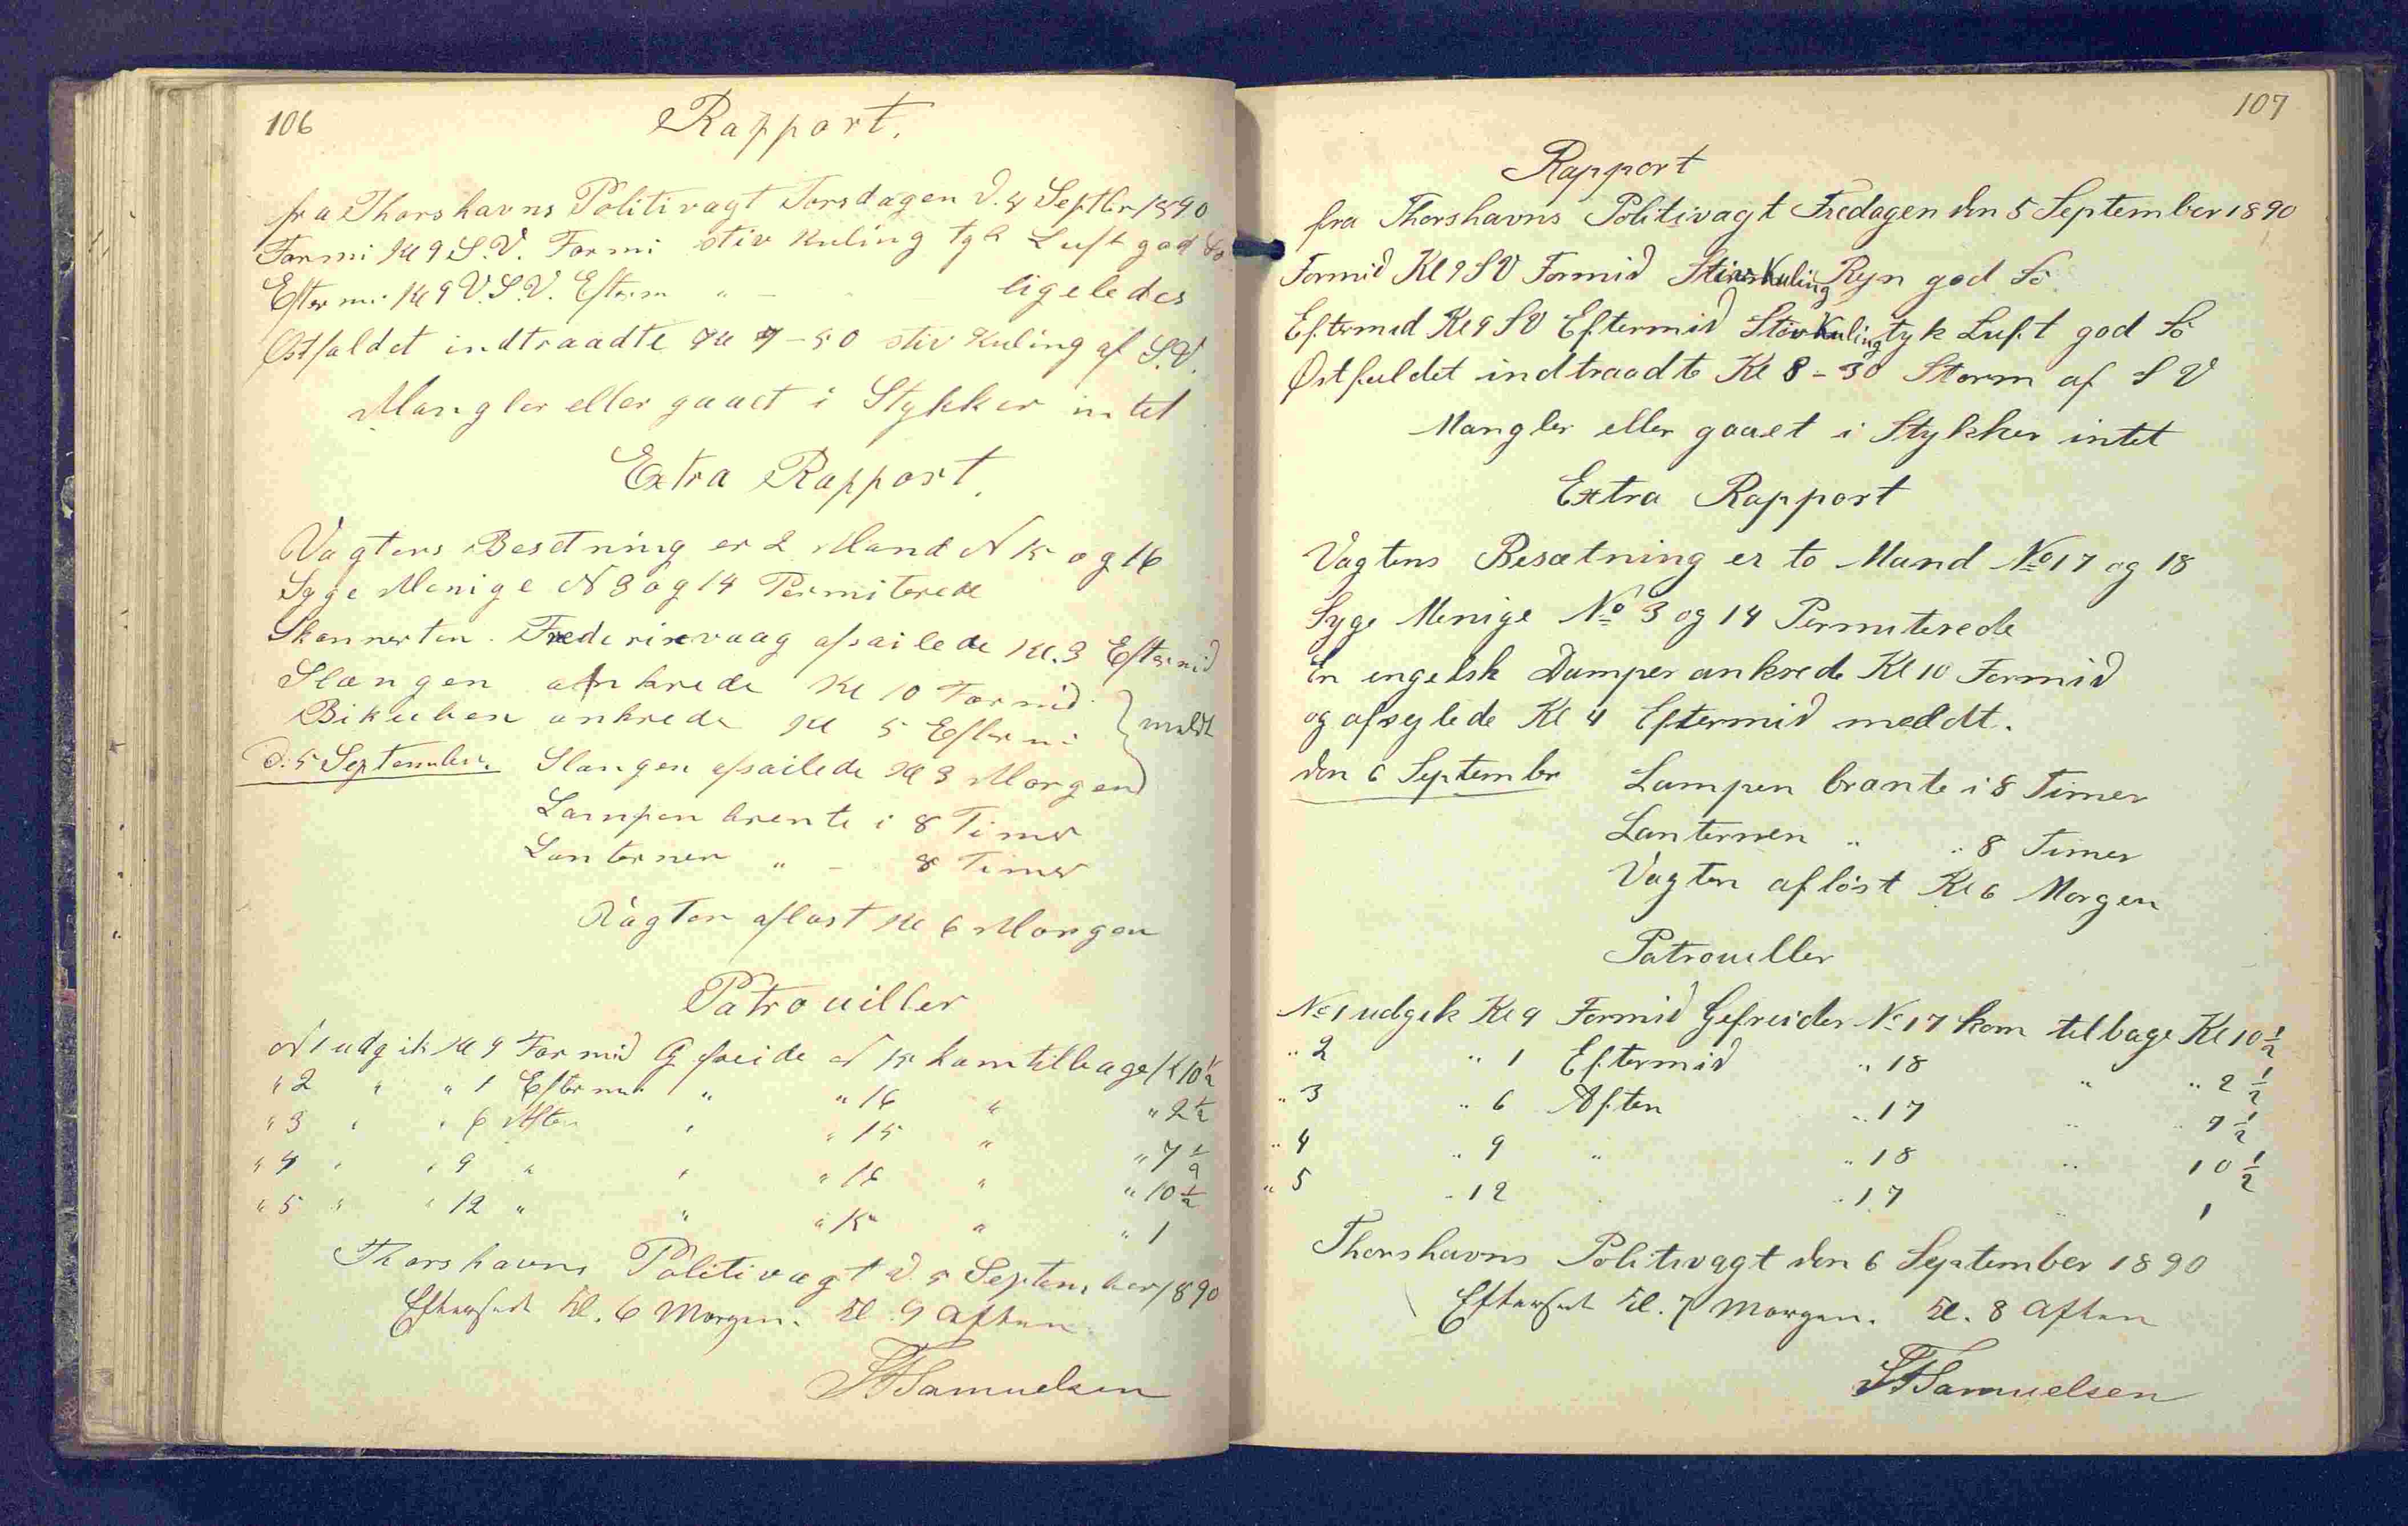 106
Rapport.
fra Thorshavns Politivagt Torsdagen d. 4 Septbr 1890
Formi Kl 9 S.V. Formi stiv Kuling tyk Luft god Sø
Eftermi Kl 9 V.S.V. Efterm " - ligeledes
Østfaldet indtraadte Kl 7-50 stiv Kuling af S.V.
Mangler eller gaaet i Stykker intet
Extra Rapport.
Vagtens Besetning er 2 Mand N 15 og 16
Syge Menige N 3 og 14 Permiterede
Skonnerten Frederixvaag afsailede Kl. 3 Eftermid
Slangen ankrede Kl 10 Formid.
Bikuben ankrede Kl 5 Eftermi } meldt
D. 5 September. Slangen afsailede Kl 3 Morgen
Lampen brente i 8 Timer
Lanternen " - 8 Timer
Vagten afløst Kl 6 Morgen
Patrouiller
N 1 udgik Kl 9 Formid Gfreide N 15 kom tilbage Kl 10 1/2
" 2 " " 1 Eftermid " " 16 " " 2 1/2
" 3 " " 6 Aften " " 15 " " 7 1/2
" 4 " " 9 " " " 16 " " 10 1/2
" 5 " " 12 " " " 15 " " 1
Thorshavns Politivagt d. 5 September 1890
Efterset Kl. 6 Morgen. Kl. 9 Aften
Samuelsen
107
Rapport
fra Thorshavns Politivagt Fredagen den 5 September 1890
Formid Kl 9 SV Formid Stiv Kuling Rejn god Sö
Eftermid Kl 9 SV Eftermid Stiv Kuling tyk Luft god Sö
Østfaldet indtraadte Kl 8-30 Storm af S V
Mangler eller gaaet i Stykker intet
Extra Rapport
Vagtens Besætning er to Mand No 17 og 18
Syge Menige No 3 og 14 Permiterede
En engelsk Damper ankrede Kl 10 Formid
og afsejlede Kl 4 Eftermid meldt.
den 6 Septembr Lampen brante i 8 Timer
Lanternen " " 8 Timer
Vagten aflöst Kl 6 Morgen
Patrouiller
No 1 udgik Kl 9 Formid Gefreider No 17 kom tilbage Kl 10 1/2
" 2 " 1 Eftermid " 18 " " 2 1/2
" 3 " 6 Aften " 17 " " 7 1/2
" 4 " 9 " " 18 " 10 1/2
" 5 " 12 " " 17 " 1
Thorshavns Politivagt den 6 September 1890
Efterset Kl. 7 Morgen. Kl. 8 Aften
Samuelsen